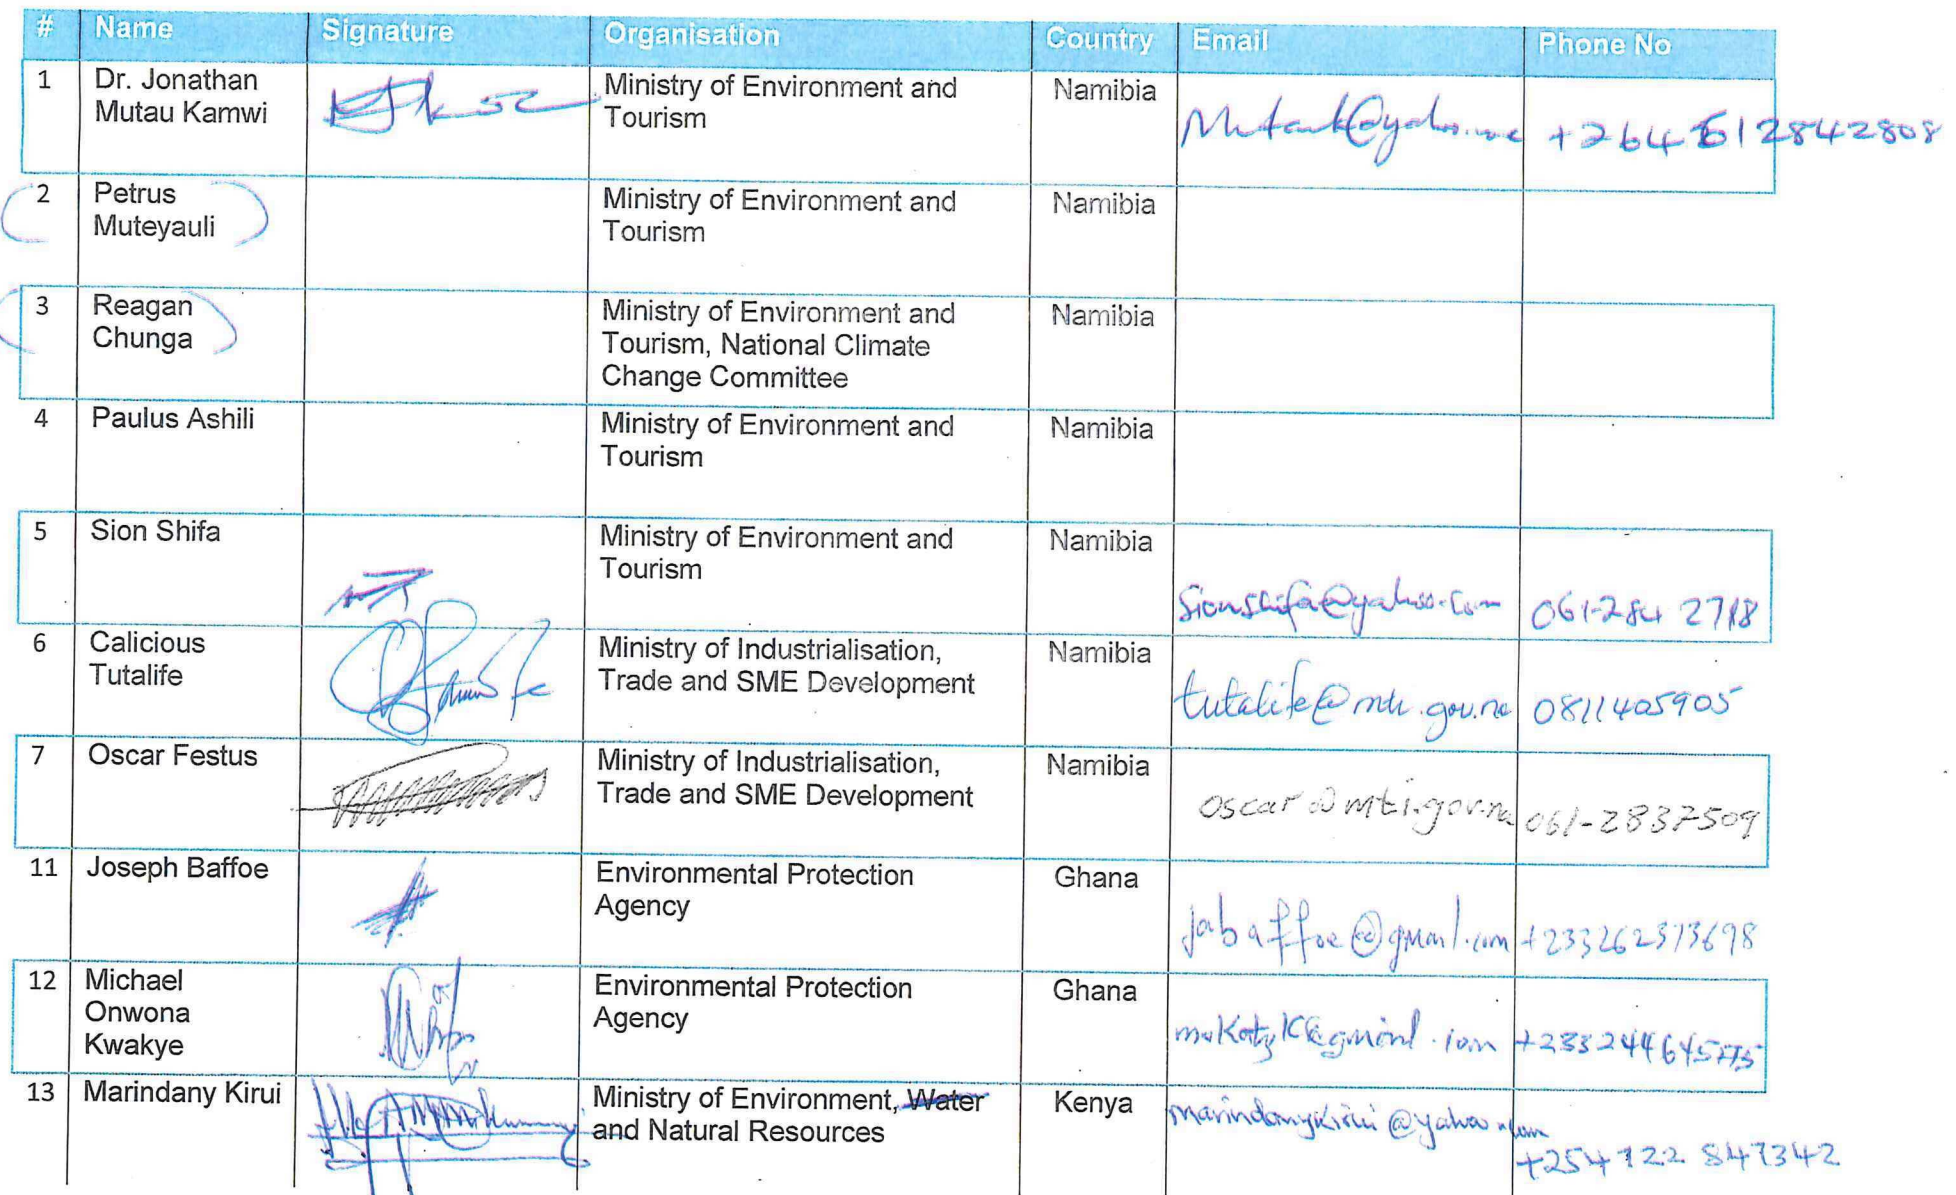 # Name Signature Organisation Country Email Phone No
1 Dr. Jonathan Mutau Kamwi Ministry of Environment and Tourism Namibia +264 612842808
2 Petrus Muteyauli Ministry of Environment and Tourism Namibia
3 Reagan Chunga Ministry of Environment and Tourism, National Climate Change Committee Namibia
4 Paulus Ashili Ministry of Environment and Tourism Namibia
5 Sion Shifa Ministry of Environment and Tourism Namibia sionshifa@yahoo.com 061-284 2718
6 Calicious Tutalife Ministry of Industrialisation, Trade and SME Development Namibia 0811405905
7 Oscar Festus Ministry of Industrialisation, Trade and SME Development Namibia oscar@mti.gov.na 061-2837509
11 Joseph Baffoe Environmental Protection Agency Ghana jabaffoe@gmail.com +233262373698
12 Michael Onwona Kwakye Environmental Protection Agency Ghana
13 Marindany Kirui Ministry of Environment, Water and Natural Resources Kenya marindanykirui@yahoo.com
+254722 847342